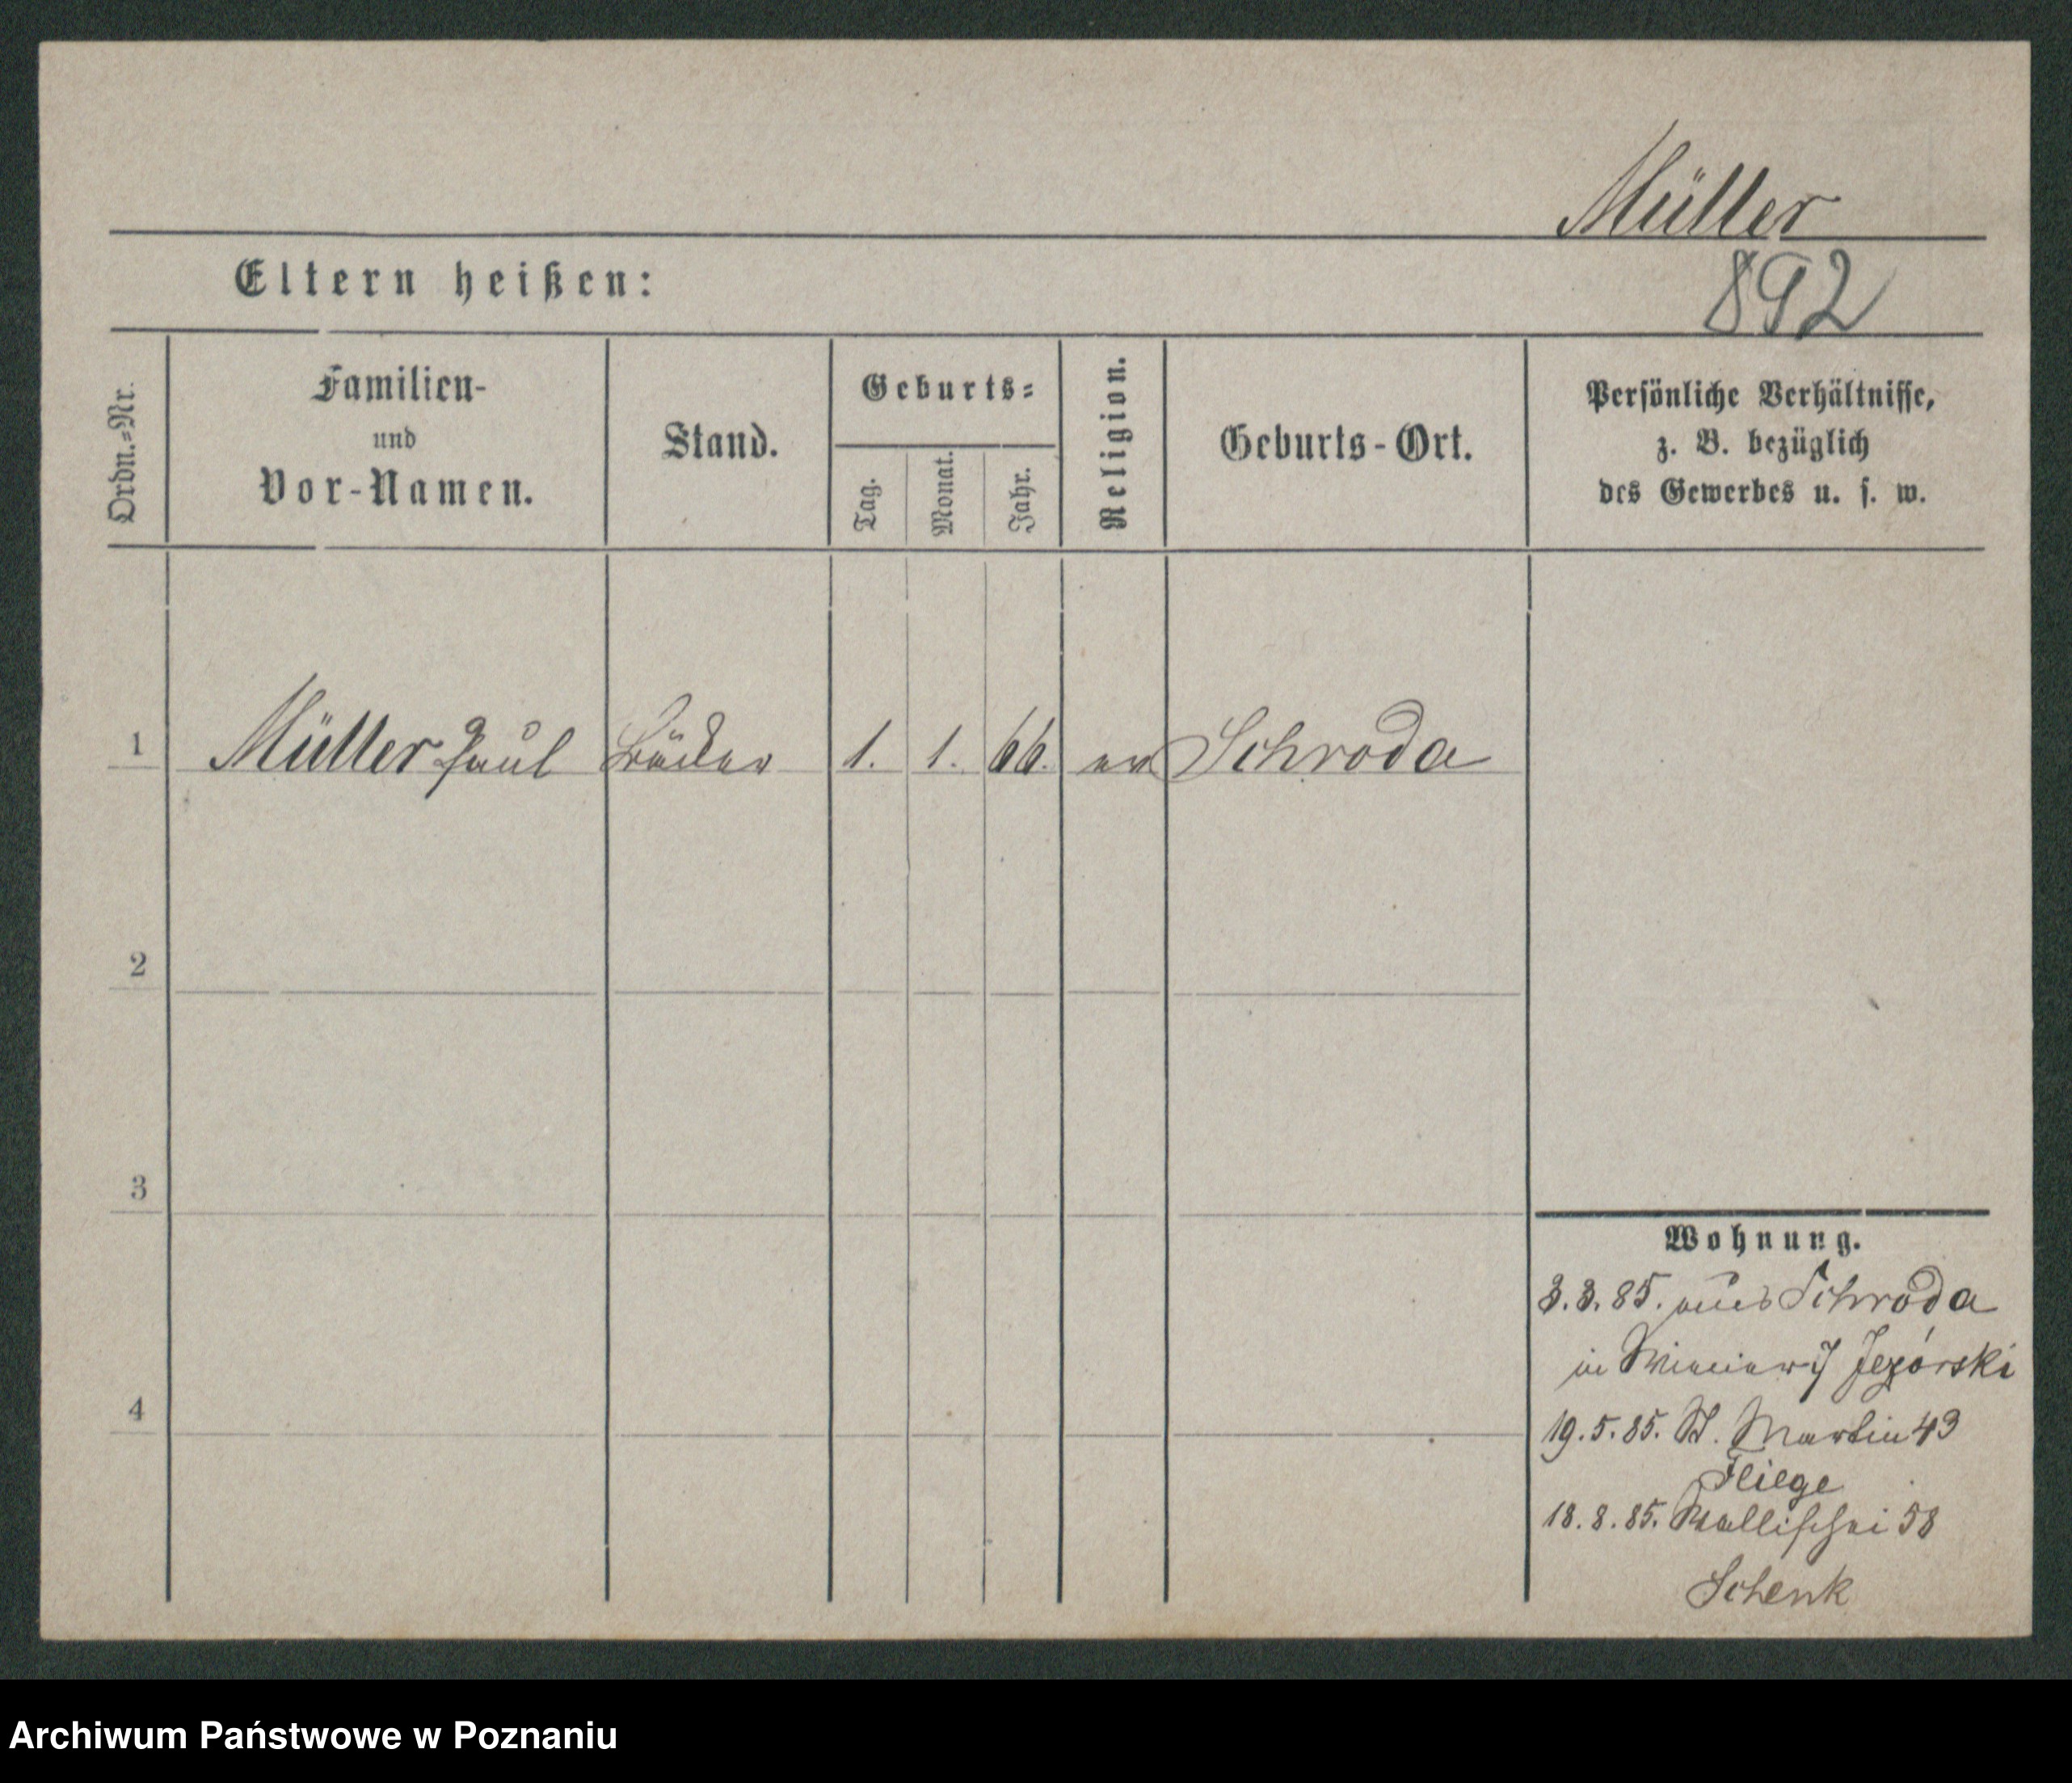 Müller
Eltern heißen:
892
Ordn.-Nr.
Familien-
und
Vor-Namen.
Stand.
Geburts-
Tag.
Monat.
Jahr.
Religion.
Geburts-Ort.
Persönliche Verhältnisse,
z. B. bezüglich
des Gewerbes u. s. w.
1 Müller Paul Bäcker 1. 1. 66. ev Schroda
2
3
4
Wohnung.
3.3.85. aus Schroda
in Jezórski
19.5.85. St. Martin 43
Fliege
18.8.85. Wallischei 58
Schenk
Archiwum Państwowe w Poznaniu